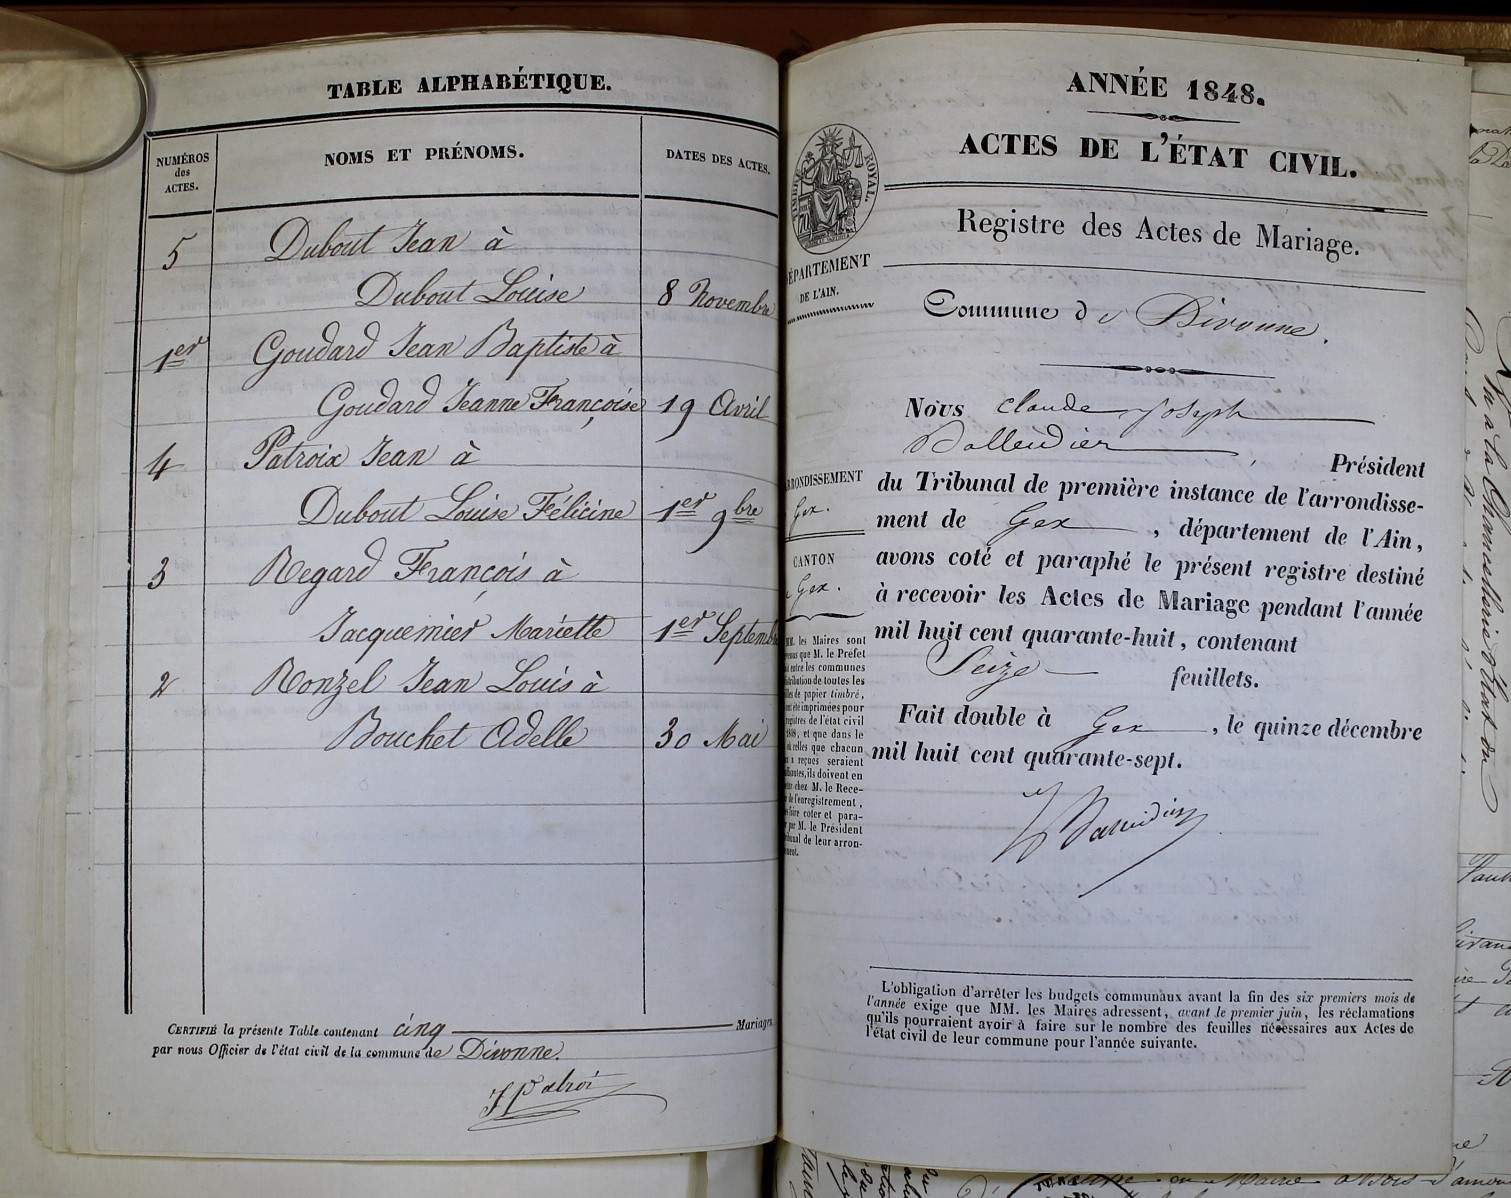 TABLE ALPHABÉTIQUE.
NUMÉROS des ACTES.
NOMS ET PRÉNOMS.
DATES DES ACTES.
5 Dubout Jean à
Dubout Louise 8 Novembre
1er Goudard Jean Baptiste à
Goudard Jeanne Françoise 19 Avril
4 Patroix Jean à
Dubout Louise Félicine 1er 9bre
3 Regard François à
Jacquemier Mariette 1er Septemb
2 Ronzel Jean Louis à
Bouchet Adelle 30 Mai
CERTIFIÉ la présente Table contenant cinq Mariages
par nous Officier de l'état civil de la commune de Divonne.
ANNÉE 1848.
ACTES DE L'ÉTAT CIVIL.
TIMBRE ROYAL.
Registre des Actes de Mariage.
DÉPARTEMENT
DE L'AIN.
Commune de Divonne.
Nous Claude Joseph
Balleidier, Président
du Tribunal de première instance de l'arrondisse-
ment de Gex, département de l'Ain,
avons coté et paraphé le présent registre destiné
à recevoir les Actes de Mariage pendant l'année
mil huit cent quarante-huit, contenant
Seize feuillets.
Fait double à Gex, le quinze décembre
mil huit cent quarante-sept.
ARRONDISSEMENT
Gex.
CANTON
Gex.
MM. les Maires sont
que M. le Préfet
entre les communes
distribution de toutes les
de papier timbré,
été imprimées pour
registres de l'état civil
1848, et que dans le
où celles que chacun
a reçues seraient
, ils doivent en
chez M. le Rece-
de l'enregistrement,
faire coter et para-
par M. le Président
de leur arron-
L'obligation d'arrêter les budgets communaux avant la fin des six premiers mois de
l'année exige que MM. les Maires adressent, avant le premier juin, les réclamations
qu'ils pourraient avoir à faire sur le nombre des feuilles nécessaires aux Actes de
l'état civil de leur commune pour l'année suivante.